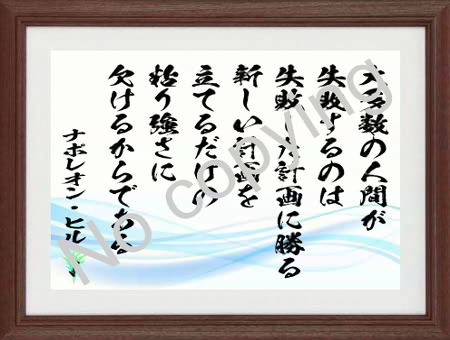 大多数の人間が
失敗するのは
失敗した計画に勝る
新しい計画を
立てるだけの
粘り強さに
欠けるからである
ナポレオン・ヒル
No copying